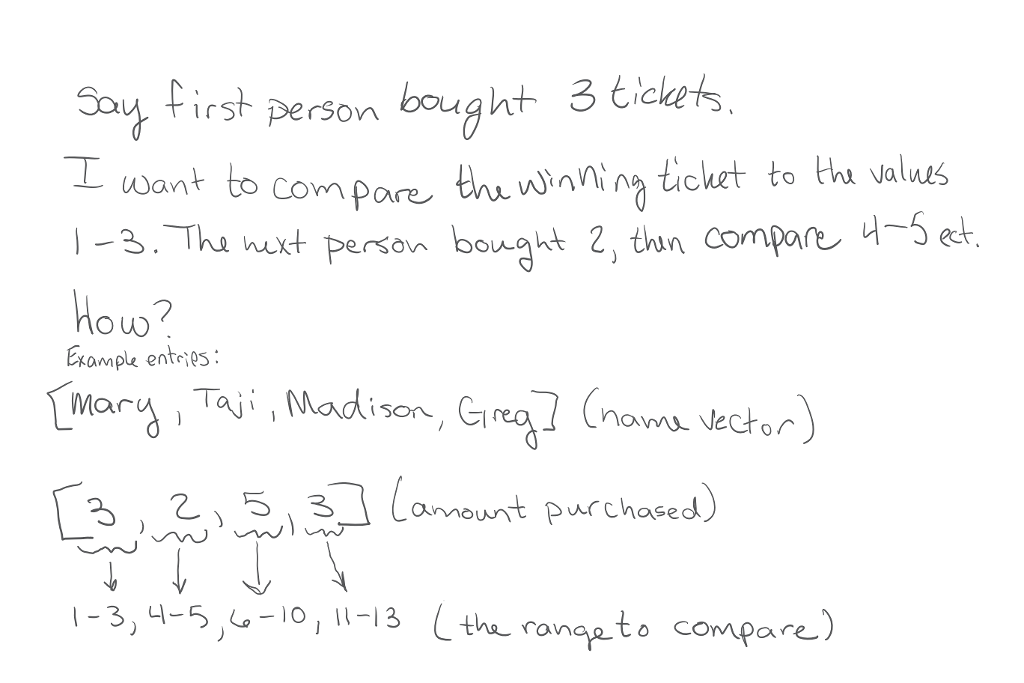 Say first person bought 3 tickets.
I want to compare the winning ticket to the values
1-3. The next person bought 2, then compare 4-5 ect.
How?
Example entries:
[Mary, Taji, Madison, Greg] (name vector)
[3, 2, 5, 3] (amount purchased)
1-3, 4-5, 6-10, 11-13 (the range to compare)